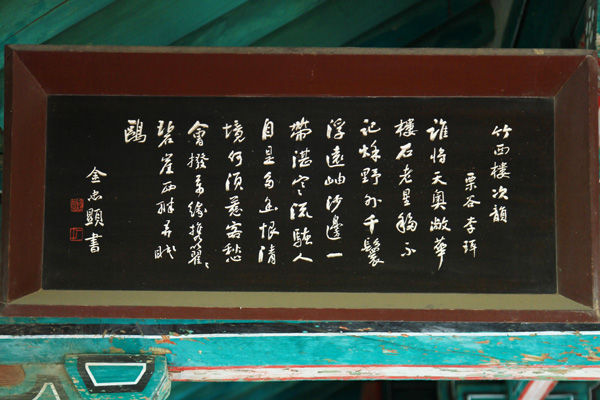 竹西樓次韻
栗谷李珥
誰將天奧敞華
樓石老星移不
記秋野外千鬟
浮遠岫沙邊一
帶湛寒流騷人
自是多幽恨清
境何須惹客愁
會撥萬緣携籊〻
碧崖西畔弄眠
鷗
金忠顯書